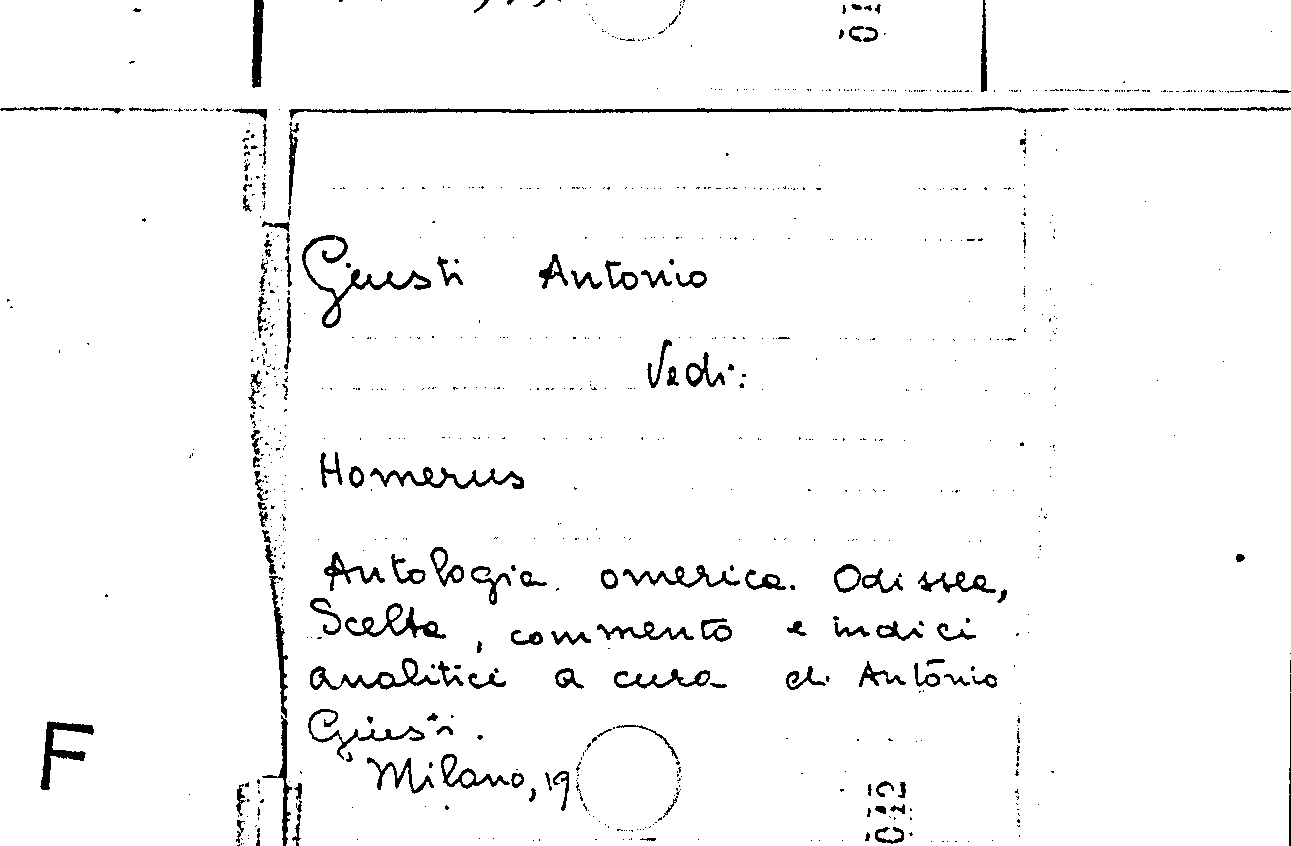 Giusti Antonio
Vedi:
Homerus
Antologia omerica. Odissea,
Scelta, commento e indici
analitici a cura di Antonio
Giusti.
F
Milano, 19